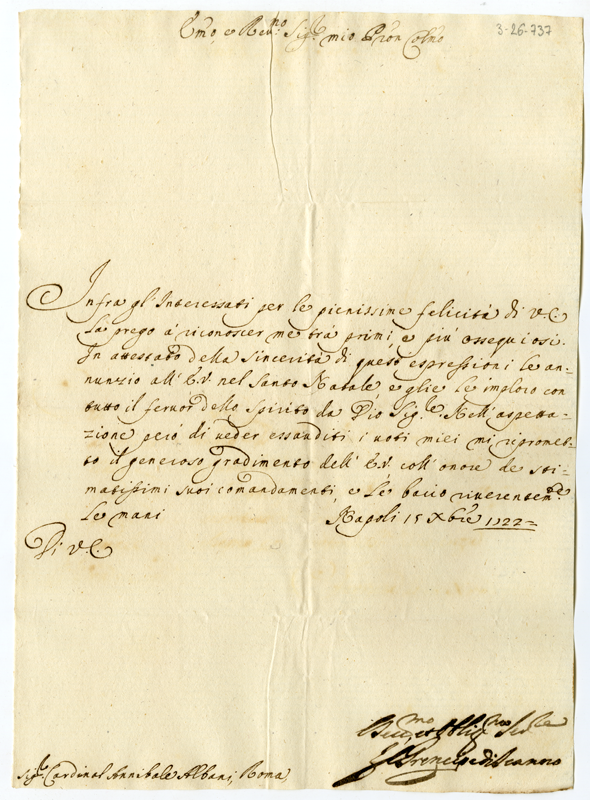 Emo, e Revmo Sigre mio Pron Colmo
3-26-737
Infra gl'Interessati per le pienissime felicità di V.E.
La prego à riconoscer me trà primi, e più ossequiosi.
In attestato della sincerità di queste espressioni le an-
nunzio all'E.V. nel Santo Natale, e glie le imploro con
tutto il fervor dello spirito da Dio Sigre. Nell'aspetta-
zione però di veder essauditi i voti miei mi ripromet-
to il generoso gradimento dell'E.V. coll'onore de sti-
matissimi suoi comandamenti, e Le bacio riverentemte
Le mani
Napoli 15 Xbre 1722=
Di V.E.
Sigr Cardinal Annibale Albani, Roma